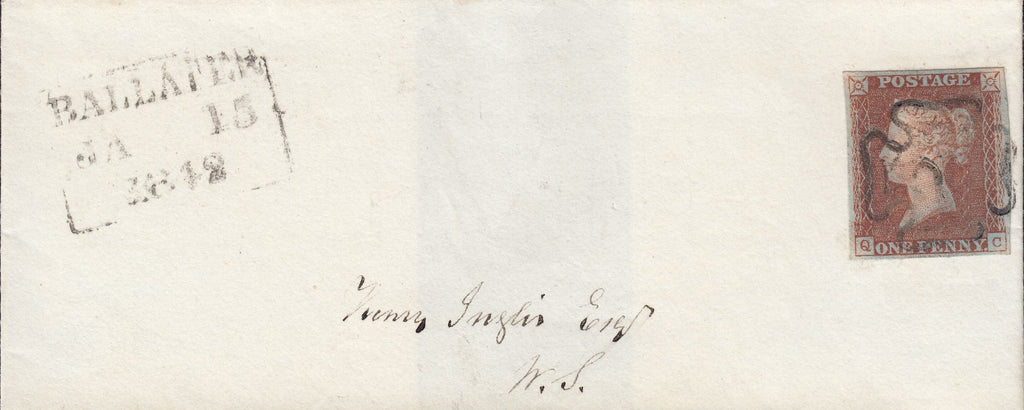 BALLATER
JA 15
1842
POSTAGE
Q ONE PENNY C
Henry Inglis Esqr
W.S.